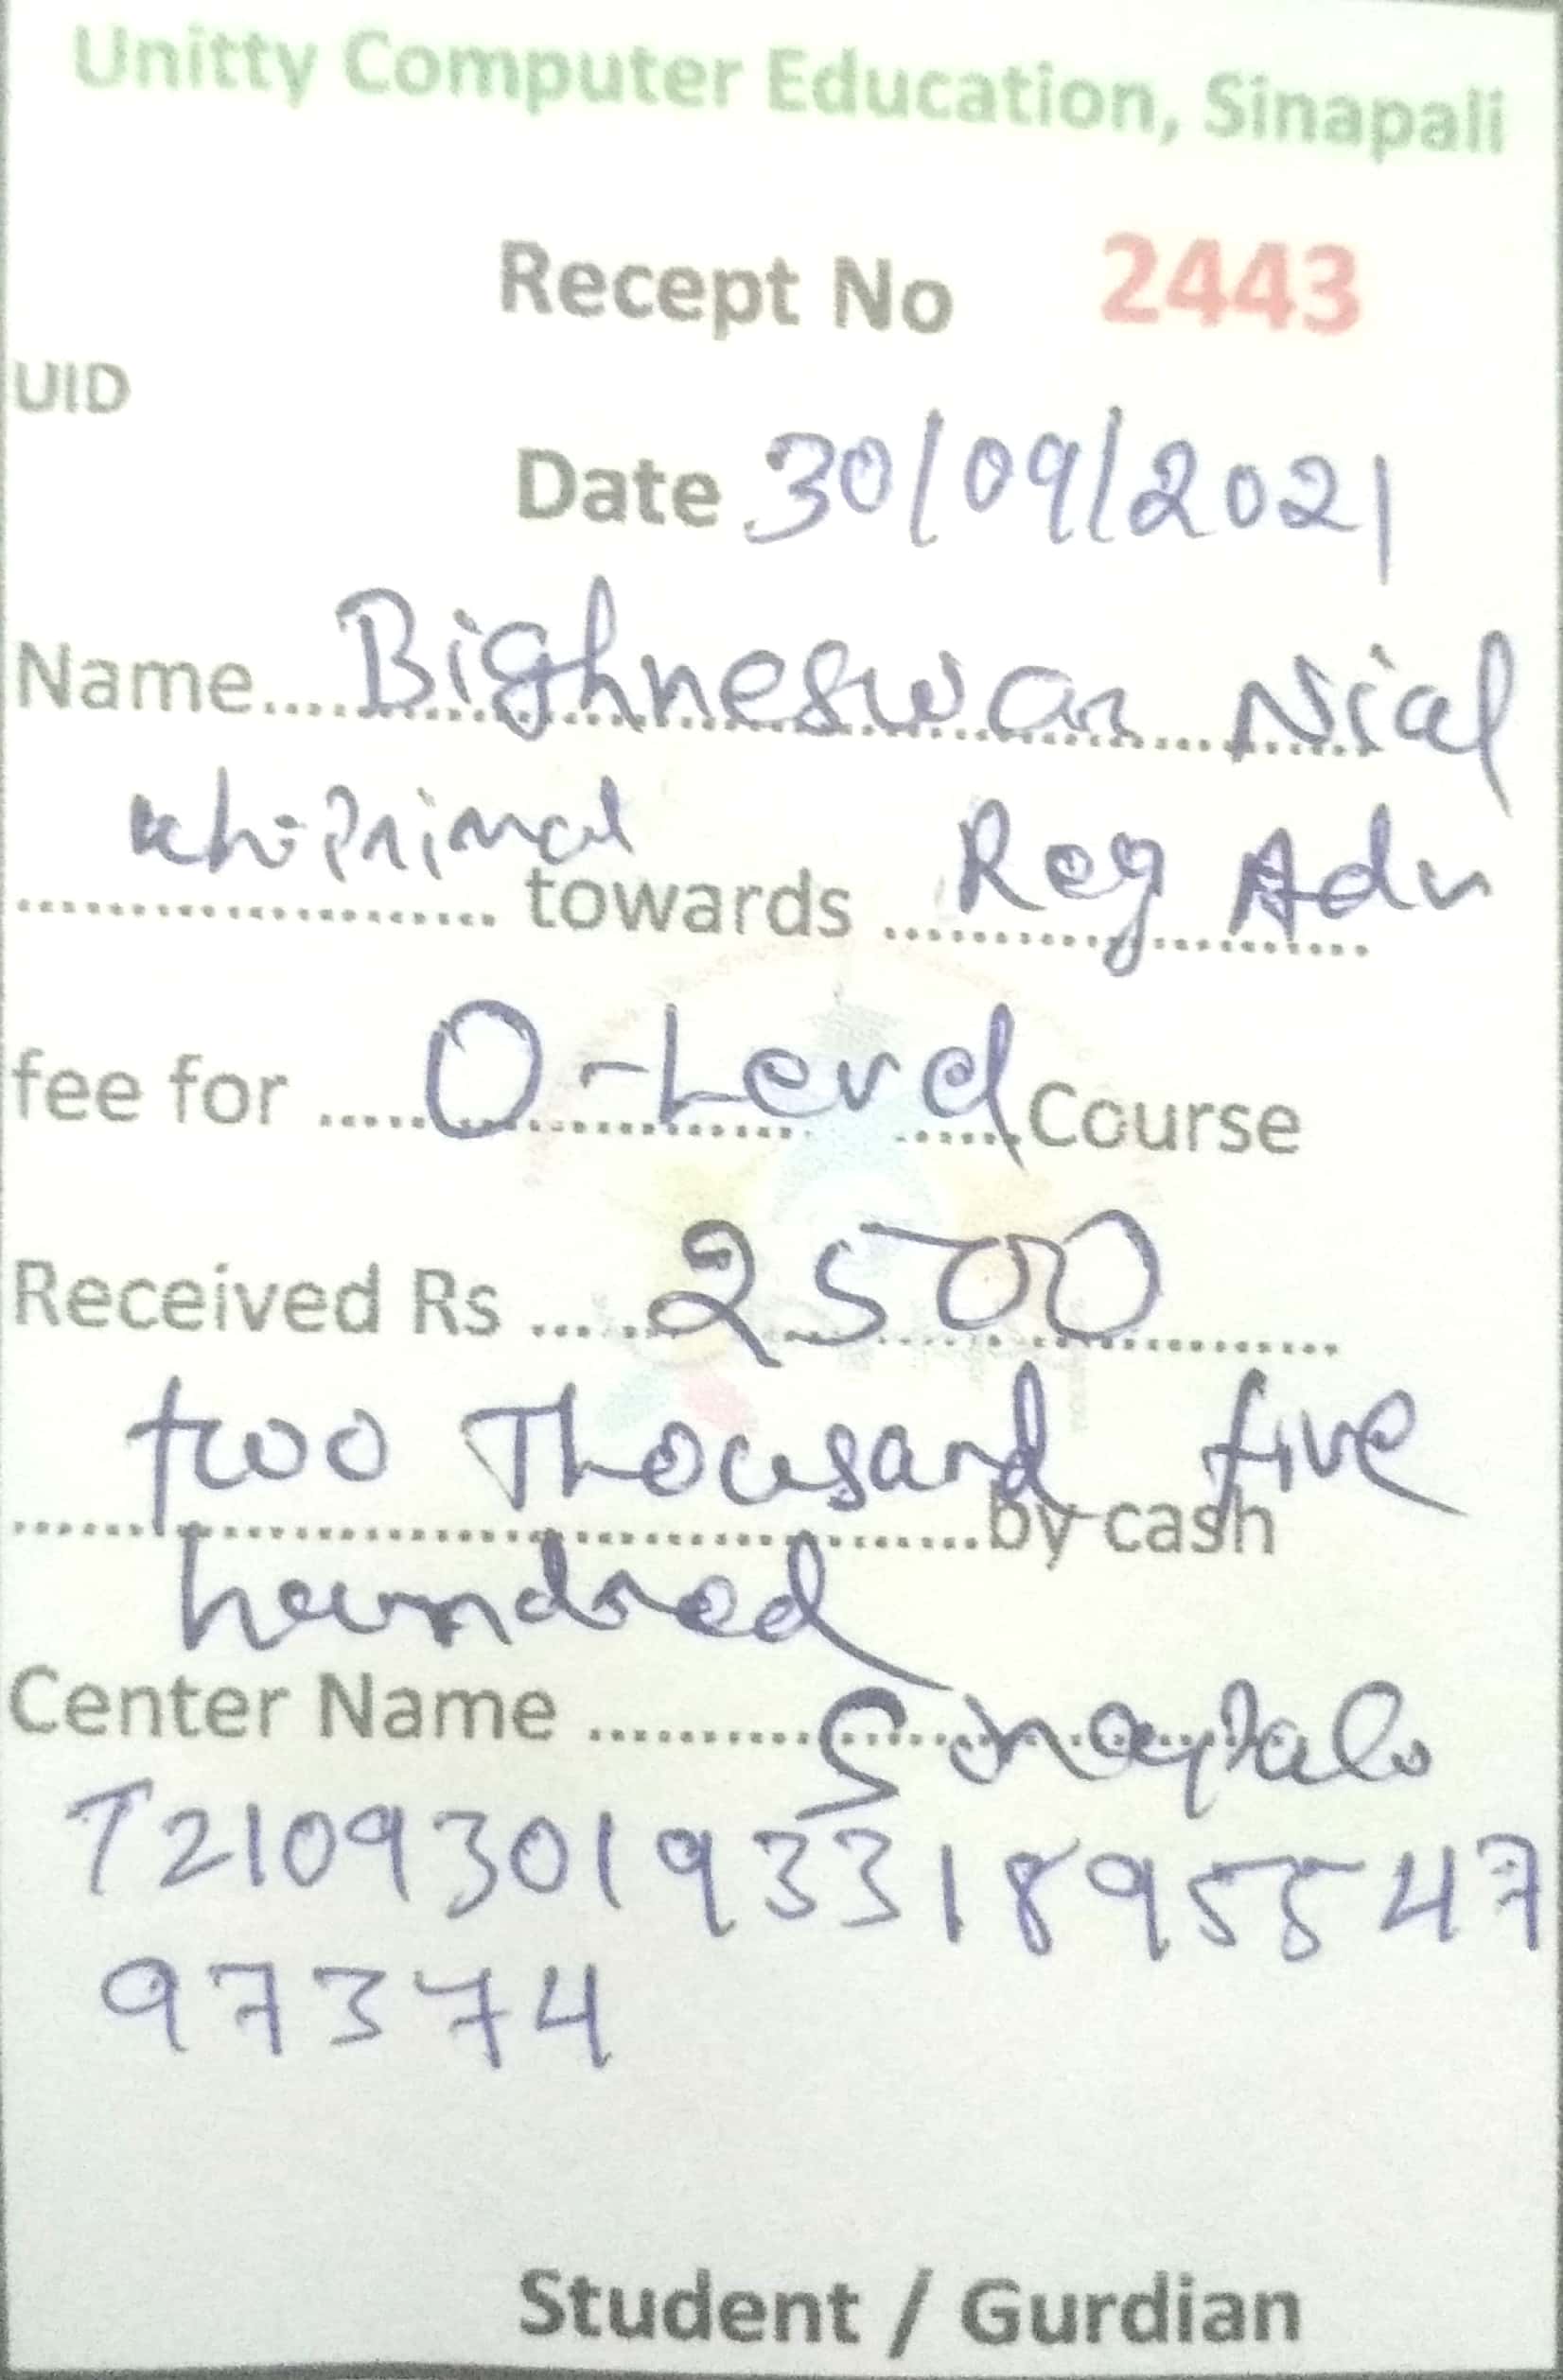 Unitty Computer Education, Sinapali
Recept No 2443
UID
Date 30/09/2021
Name.... Bighneswar Nial
towards Reg Adn
fee for ..... O-Level Course
Received Rs ... 2500
two Thousand five
by cash
hundred
Center Name ........... Sinapali
T21093019331895547
97374
Student / Gurdian